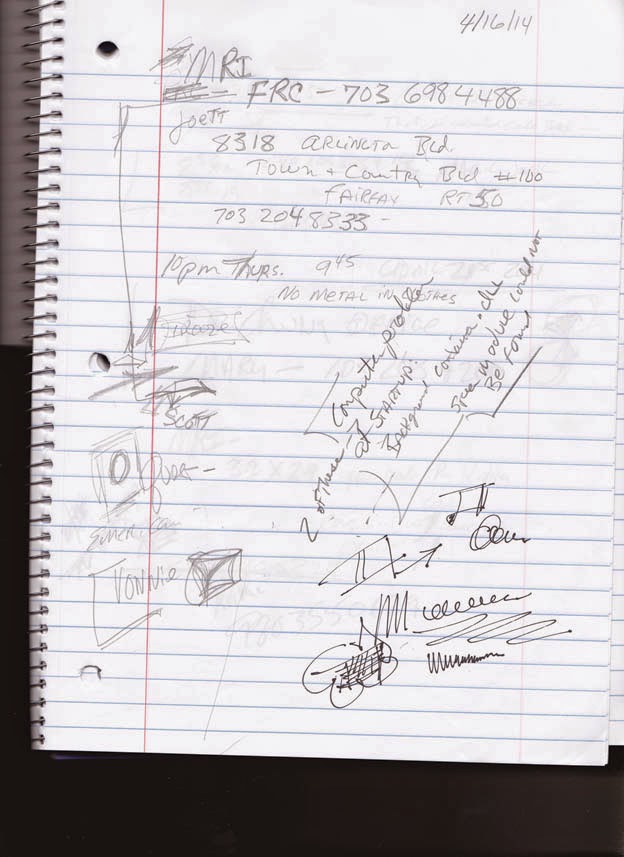 4/16/14
MRI
FRC - 703 698 4488
JoeTT
8318 ARLINGTON Blvd.
Town + Country Blvd #100
FAIRFAX RT 50
703 204 8333 -
10pm THURS. 9 45
NO METAL IN CLOTHES
SCOTT
VONNIE
2 of These
Computer problem
at STARTUP:
Background container.dll
Spec. module could not
Be found